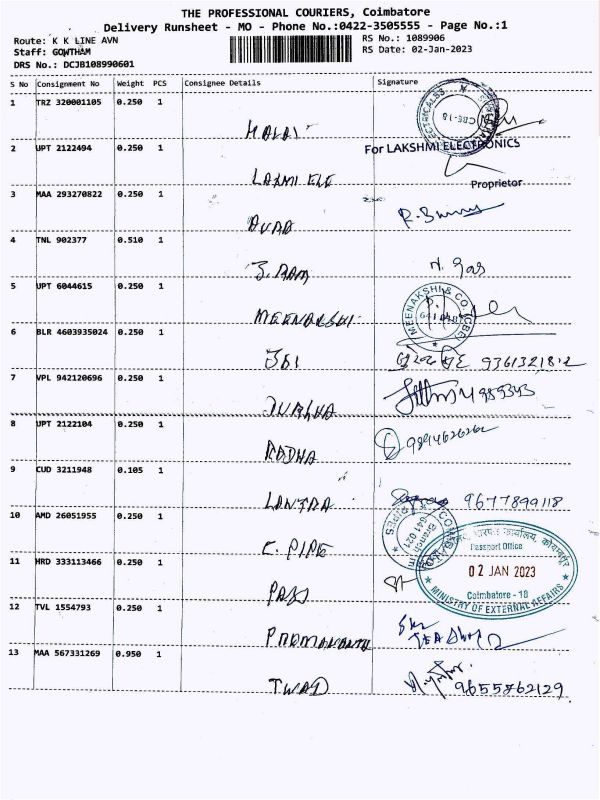 THE PROFESSIONAL COURIERS, Coimbatore
Delivery Runsheet - MO - Phone No.:0422-3505555 - Page No.:1
Route: K K LINE AVN
Staff: GOWTHAM
DRS No.: DCJB108990601
RS No.: 1089906
RS Date: 02-Jan-2023
S No Consignment No Weight PCS Consignee Details Signature
1 TRZ 320001105 0.250 1
MALAI
2 UPT 2122494 0.250 1
For LAKSHMI ELECTRONICS
LAXMI ELE
Proprietor
3 MAA 293270822 0.250 1
4 TNL 902377 0.510 1
5 UPT 6044615 0.250 1
MEENAKSHI
MEENAKSHI & CO. (CBE)
6 BLR 4603935024 0.250 1
9361321812
7 VPL 942120696 0.250 1
8 UPT 2122104 0.250 1
RADHA
9 CUD 3211948 0.105 1
9677899118
10 AMD 26051955 0.250 1
C. PIPE
Passport Office
11 HRD 333113466 0.250 1
02 JAN 2023
Coimbatore - 18
MINISTRY OF EXTERNAL AFFAIRS
PASS
12 TVL 1554793 0.250 1
13 MAA 567331269 0.950 1
TWAD
9655862129